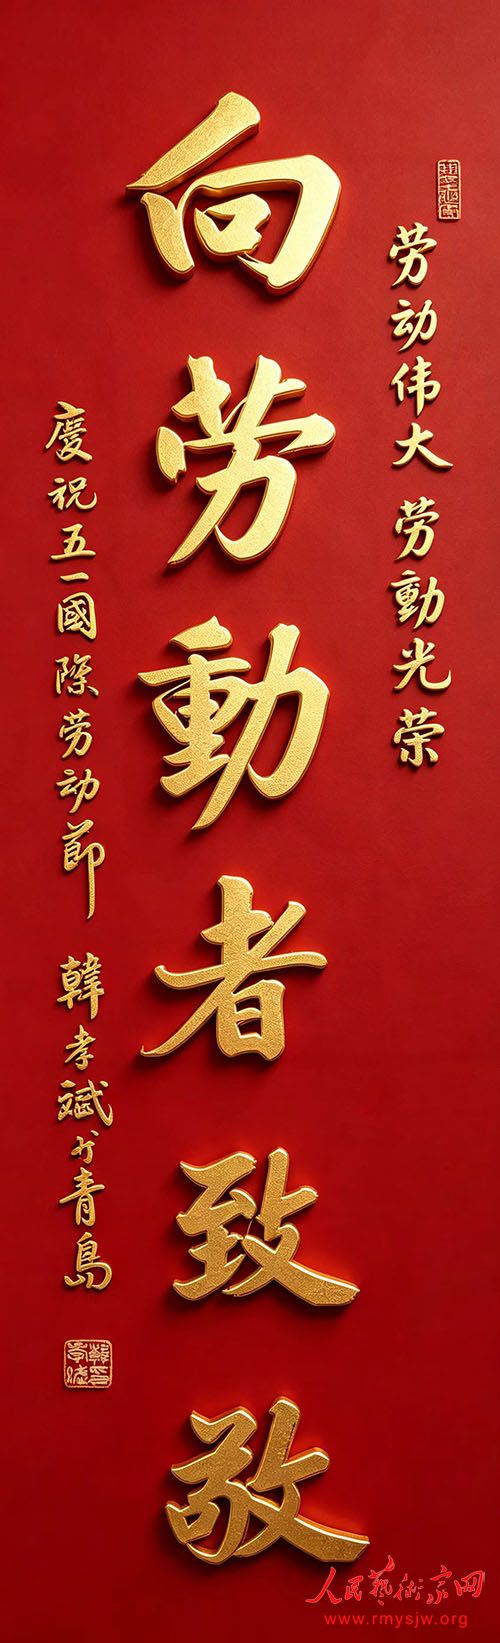 劳动伟大 劳動光荣
向劳動者致敬
慶祝五一國際劳动節 韓孝斌 青島
人民藝術家网
www.rmysjw.org